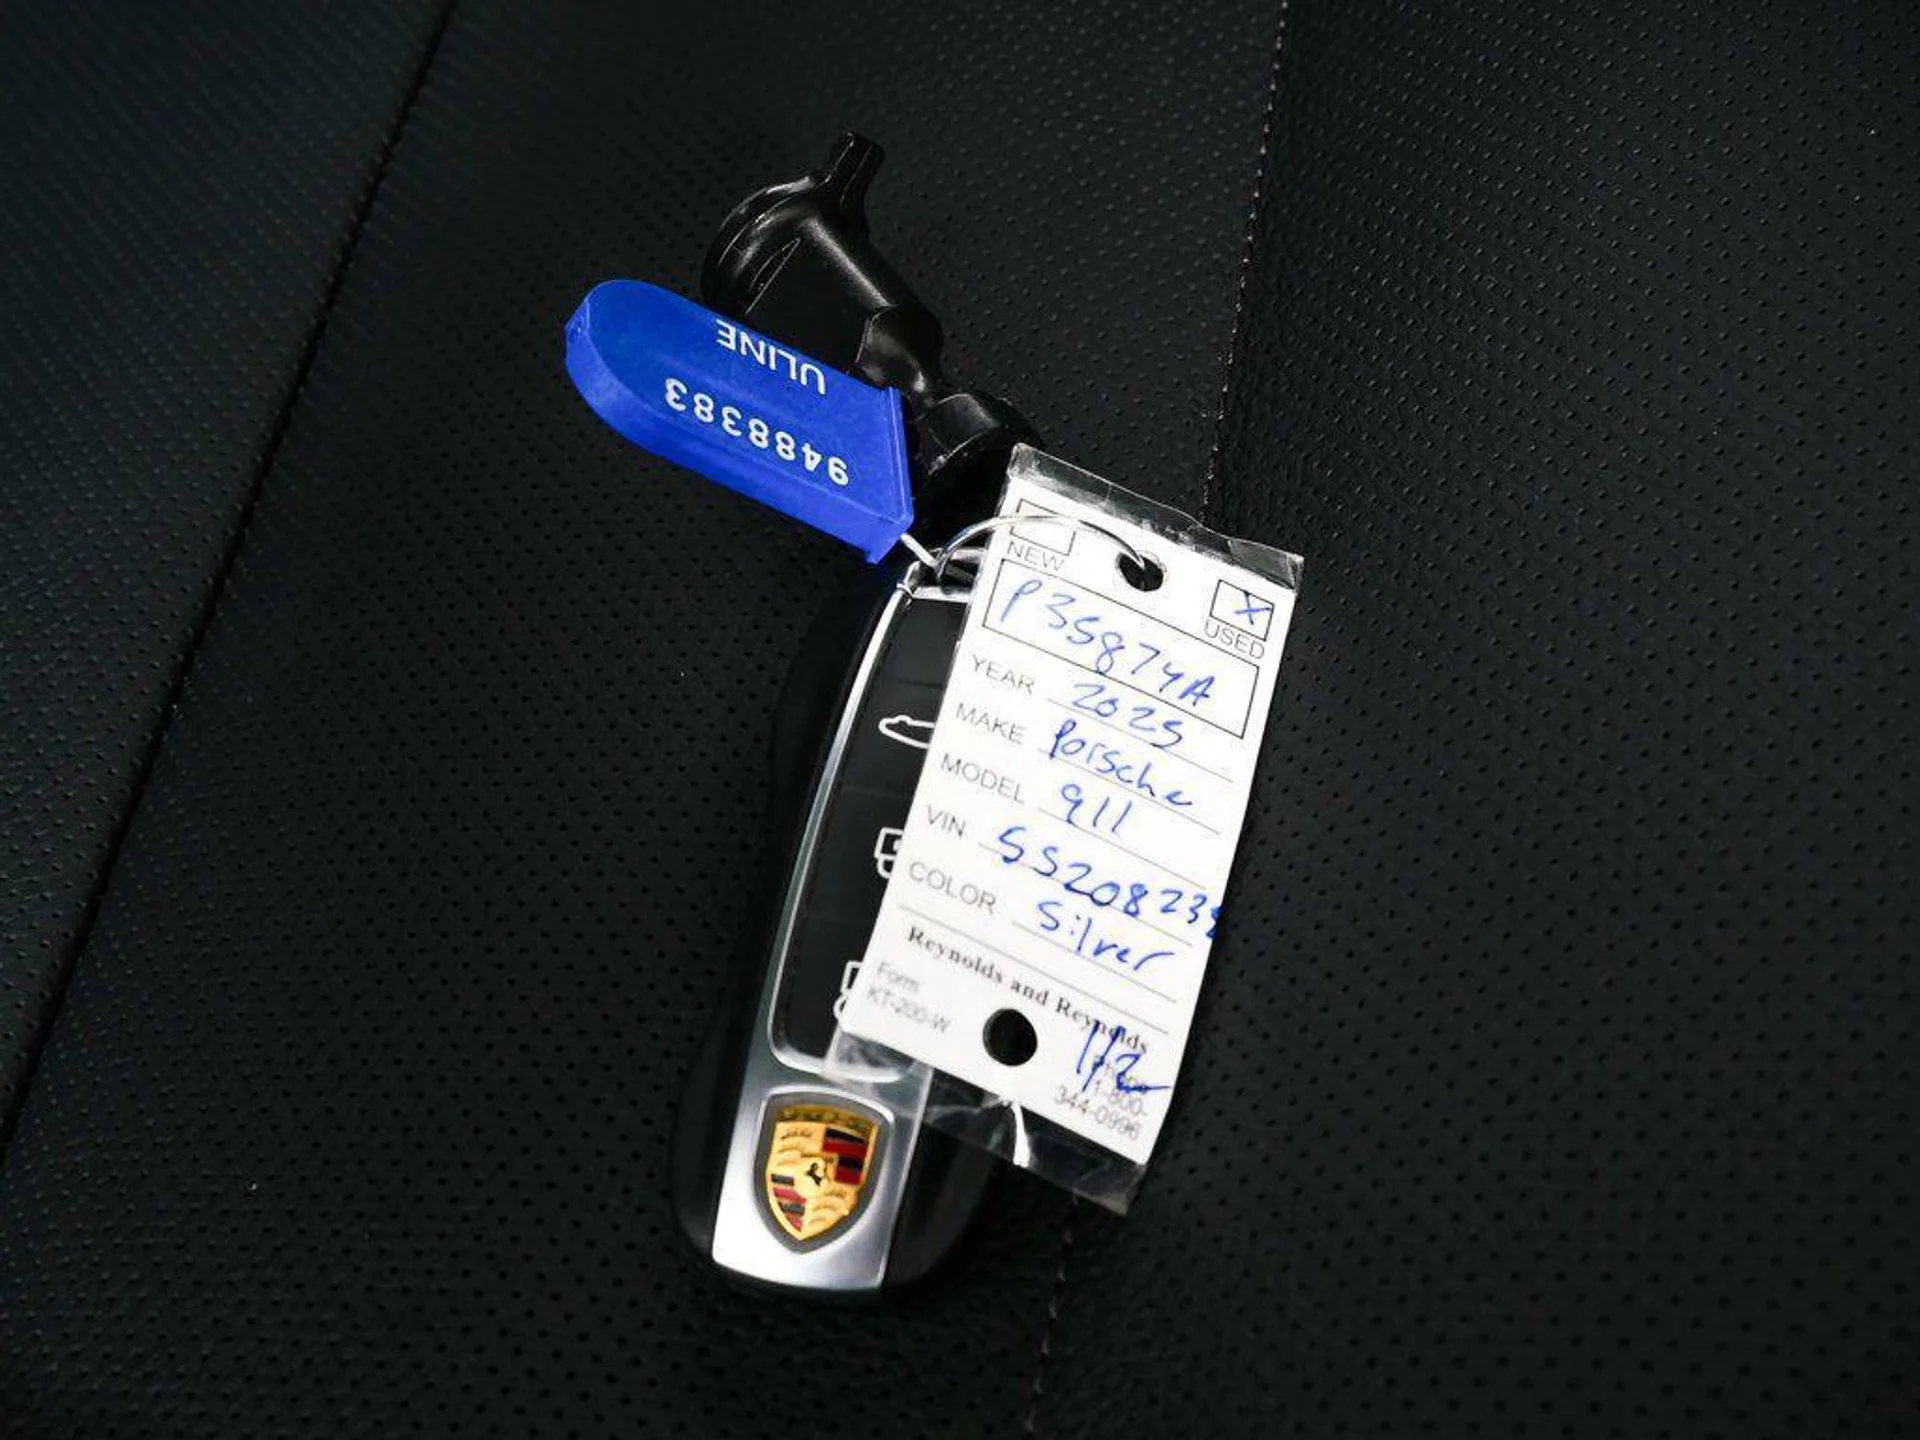 ULINE
9488383
NEW
X
USED
P35874A
YEAR 2025
MAKE Porsche
MODEL 911
VIN SS208238
COLOR Silver
Reynolds and Reynolds
Form
KT-200-W
1/2
Phone
1-800-
344-0996